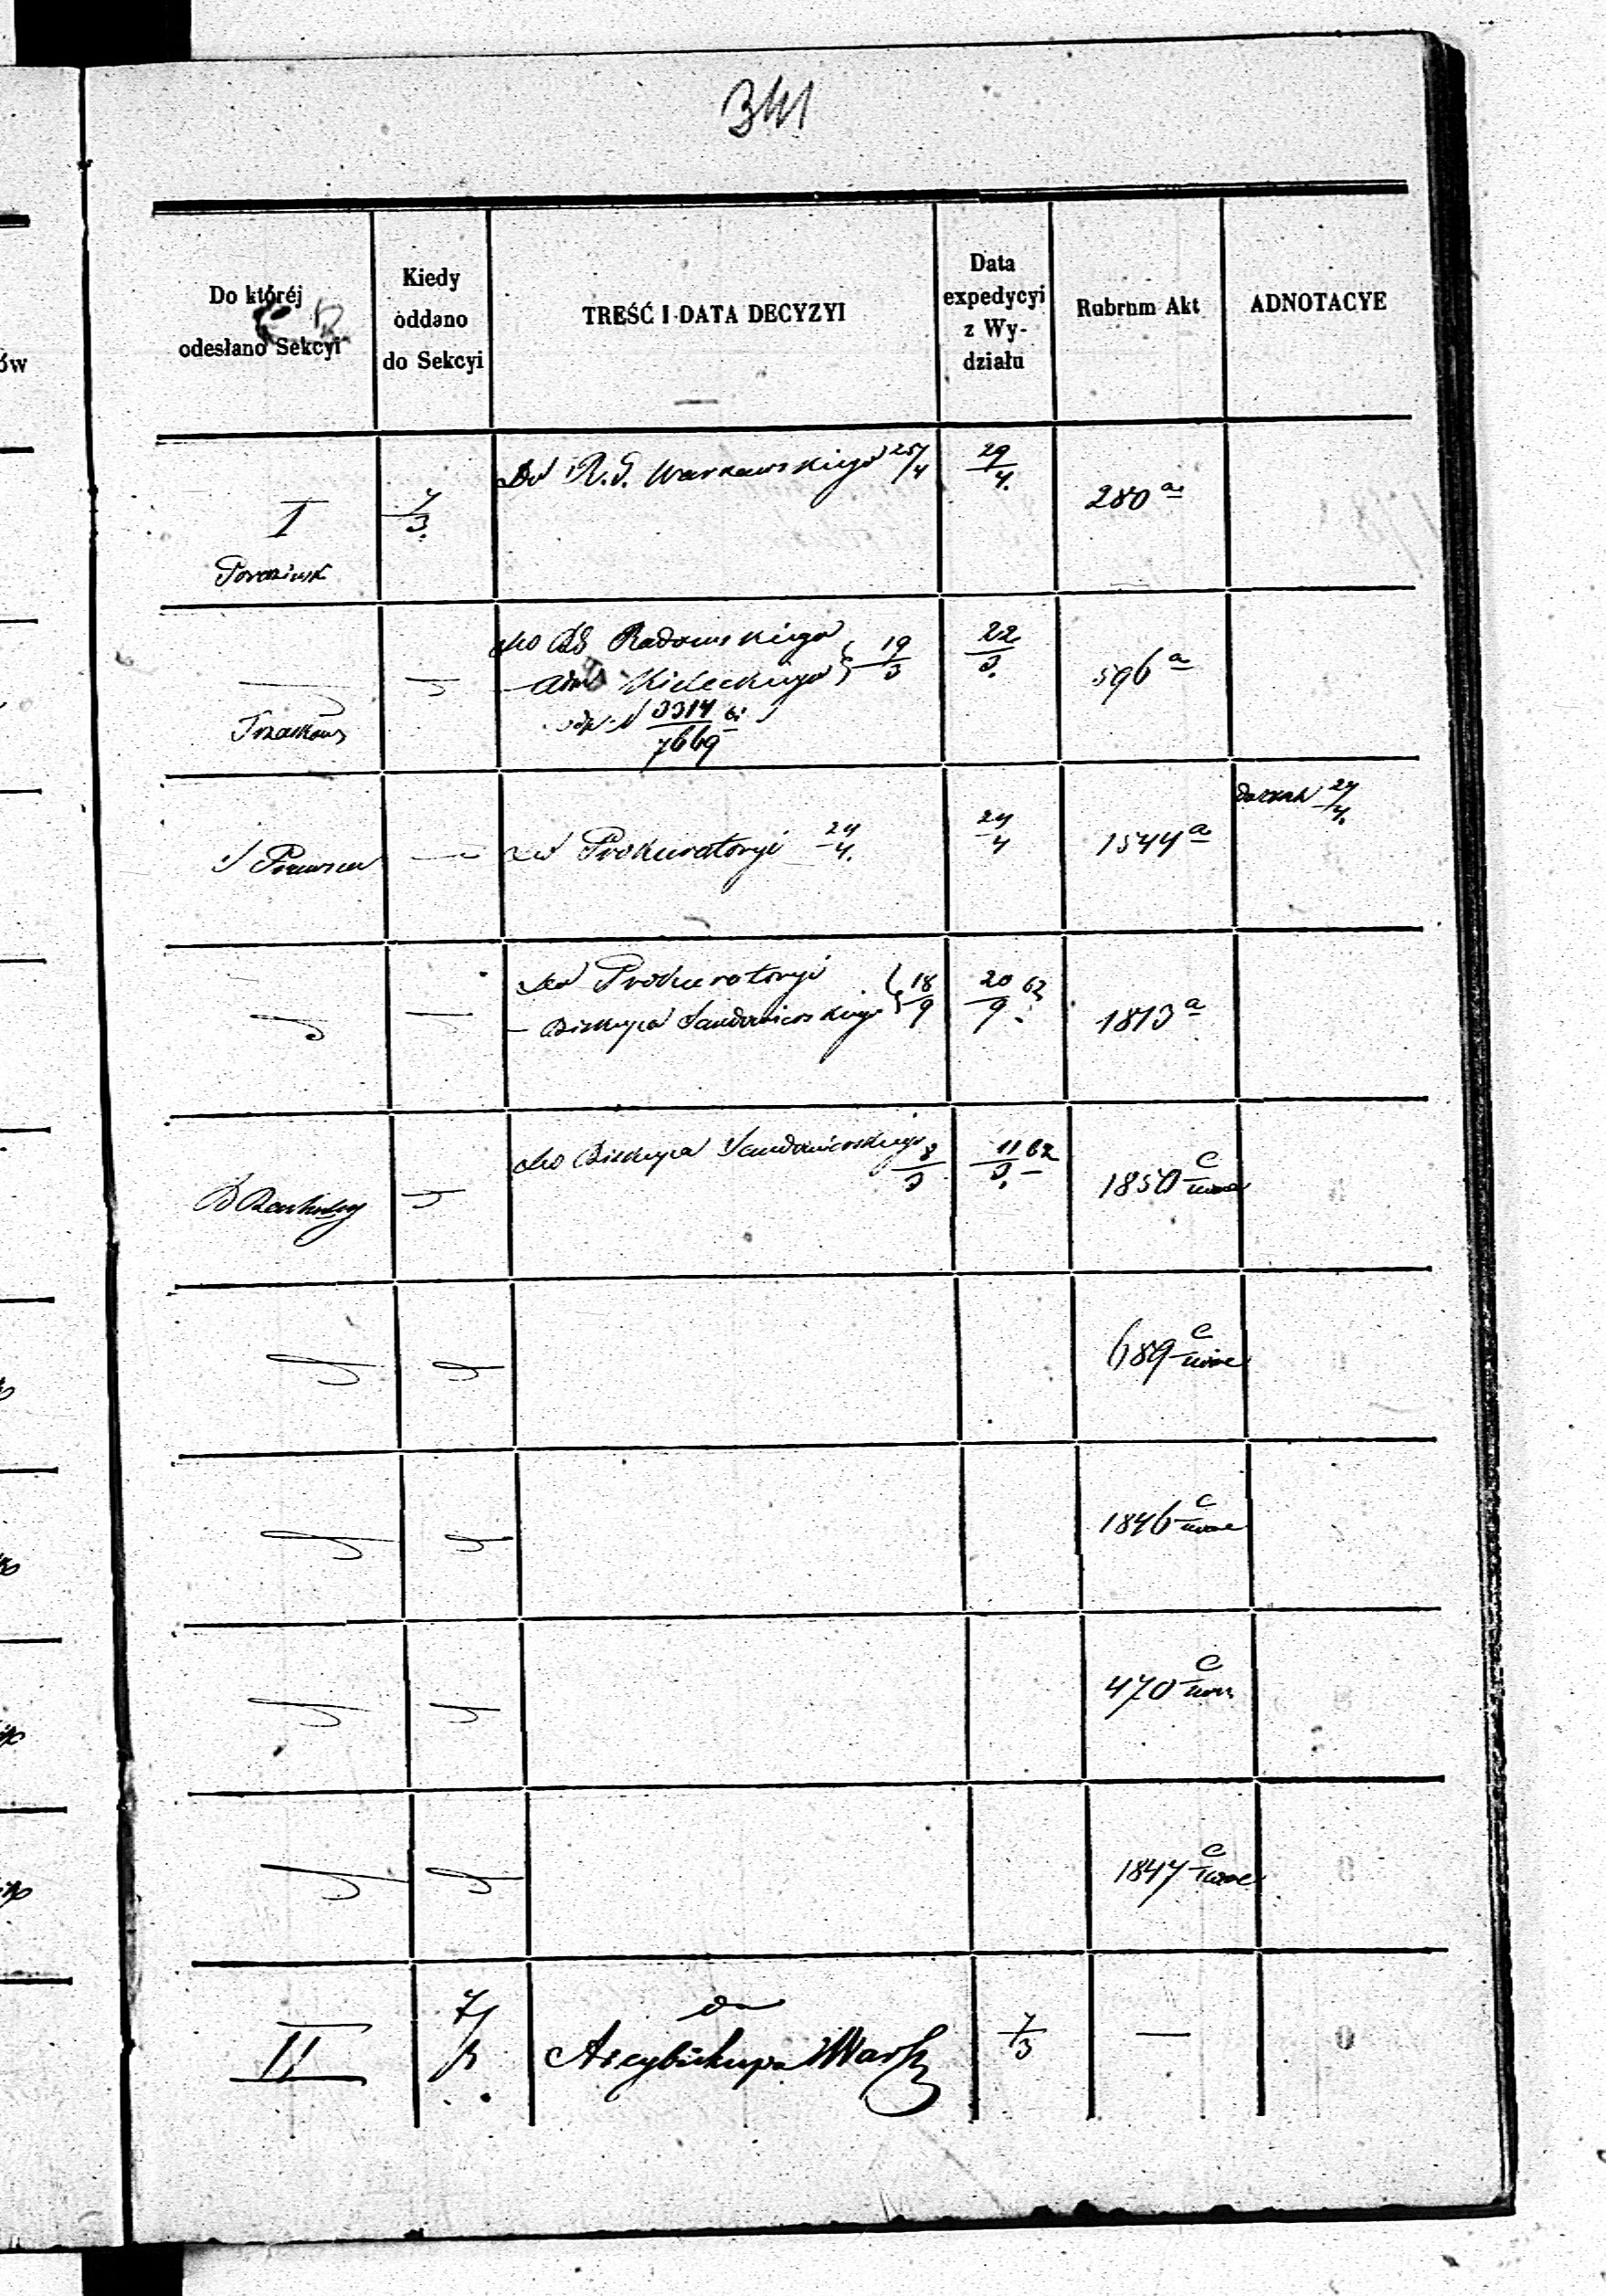 341
Do któréj
odesłano Sekcyi
Kiedy
oddano
do Sekcyi
TREŚĆ I DATA DECYZYI
Data
expedycyi
z Wy-
działu
Rubrum Akt
ADNOTACYE
ów
I
7/3
Do R. G. Warszawskiego 25/4
29/4.
280 a
Do RG Radomskiego
Kieleckiego } 19/3
3314
7669
22/3.
596 a
Do Prokuratoryi 24/4.
24/4
1544 a
24/4.
Do Prokuratoryi
– Biskupa Sandomierskiego } 18/9
20/9 62
1813 a
Do Biskupa Sandomierskiego 8/3
11/3. 62
1850 c
689 c
1846 c
470 c
1847 c
II
7/3
do
Arcybiskupa Warsz
7/3
—